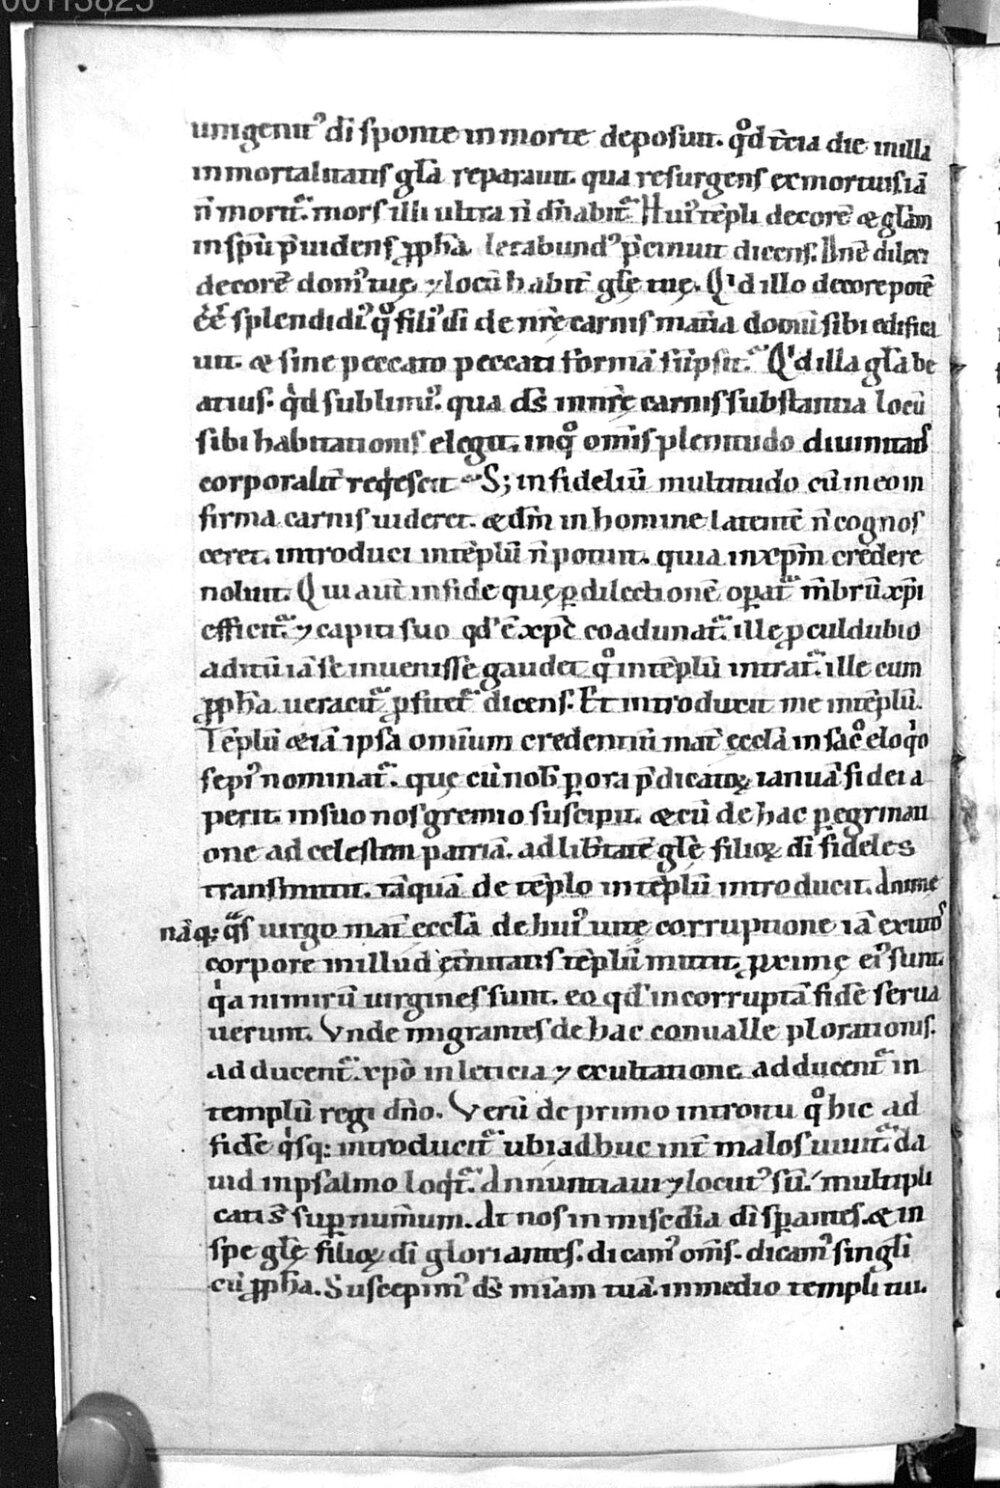 00113825
unigenit᾽ di̅ sponte in morte deposuit. qͦd t̅cia die in illa
inmortalitatis gl̅a reparauit. qua resurgens ex mortuis ia̅
n̅ morit᷑. mors illi ultra n̅ dn̅abit᷑. Hui᾽ te̅pli decore̅ & gl̅am
in sp̅u p̅uidens ꝓph̅a. letabund᾽ p̅cinuit dicens. Dn̅e dilexi
decore̅ dom᾽ tuę ⁊ locu̅ habit̅ gl̅ę tuę. Qͥd illo decore pote̅
e̅e̅ splendidi᾽ qͦ fili᾽ di̅ de nr̅ę carnis mat̅ia domu̅ sibi edifica
uit. & sine peccato peccati forma̅ su̅psit᷑. Qͥd illa gl̅a be
atius. qͥd sublimi᾽. qua ds̅ in nr̅ę carnis substantia locu̅
sibi habitationis elegit. in qͦ om̅is plenitudo diuinitatis
corporalit̅ reqͥescit. S; infideliu̅ multitudo cu̅ in eo in
firma carnis uideret. & dm̅ in homine latente̅ n̅ cognos
ceret. introduci in te̅plu̅ n̅ potuit. quia in xp̅m credere
noluit. Qui aut̅ in fide quę ꝑ dilectione̅ oꝑat᷑ m̅bru̅ xp̅i
efficit᷑. ⁊ capiti suo qd᾽ e̅ xp̅c coadunat᷑. ille ꝓcul dubio
aditu̅ ia̅ se inuenisse gaudet qͦ in te̅plu̅ intrat᷑. ille cum
ꝓph̅a ueracit᷑ ꝓfitet᷑ dicens. Et introduxit me in te̅plu̅.
Te̅plu̅ & ia̅ ipsa omnium credentiu̅ mat̅ ęccl̅a in sac̊ eloqͥo
sepi᾽ nominat᷑. quę cu̅ nob̅ ꝑ ora p̅dicatoꝝ ianua̅ fidei a
perit. in suo nos gremio suscipit. & cu̅ de hac ꝑegrinati
one ad celestem patria̅. ad lib̅tate̅ gl̅ę filioꝝ di̅ fideles
transmittit. ta̅qua̅ de te̅plo in te̅plu̅ introducit. Anime
na̅q; qͣs uirgo mat̅ eccl̅a de hui᾽ uitę corruptione ia̅ exutas
corpore in illud ęt̅nitatis te̅plu̅ mittit. ꝓximę ei᾽ sunt.
qͥa nimiru̅ uirgines sunt. eo qd᾽ incorrupta̅ fide̅ serua
uerunt. Vnde migrantes de hac conualle plorationis.
adducent᷑. xp̅o in leticia ⁊ exultatione. adducent᷑ in
templu̅ regi dn̅o. Veru̅ de primo introitu qͦ hic ad
fide̅ qͥsq; introducit᷑ ubi adhuc int̅ malos uiuit᷑. da
uid in psalmo loqͥt᷑. Annuntiaui ⁊ locut᾽ su̅. multipli
cati s̅ suꝑ num̅um. At nos in mis̅cdia di̅ sꝑantes. & in
spe gl̅ę filioꝝ di̅ gloriantes. dicam᾽ om̅s. dicam᾽ singl̅i
cu̅ ꝓph̅a. Suscepim᾽ ds̅ mi̅am tua̅. in medio templi tui.